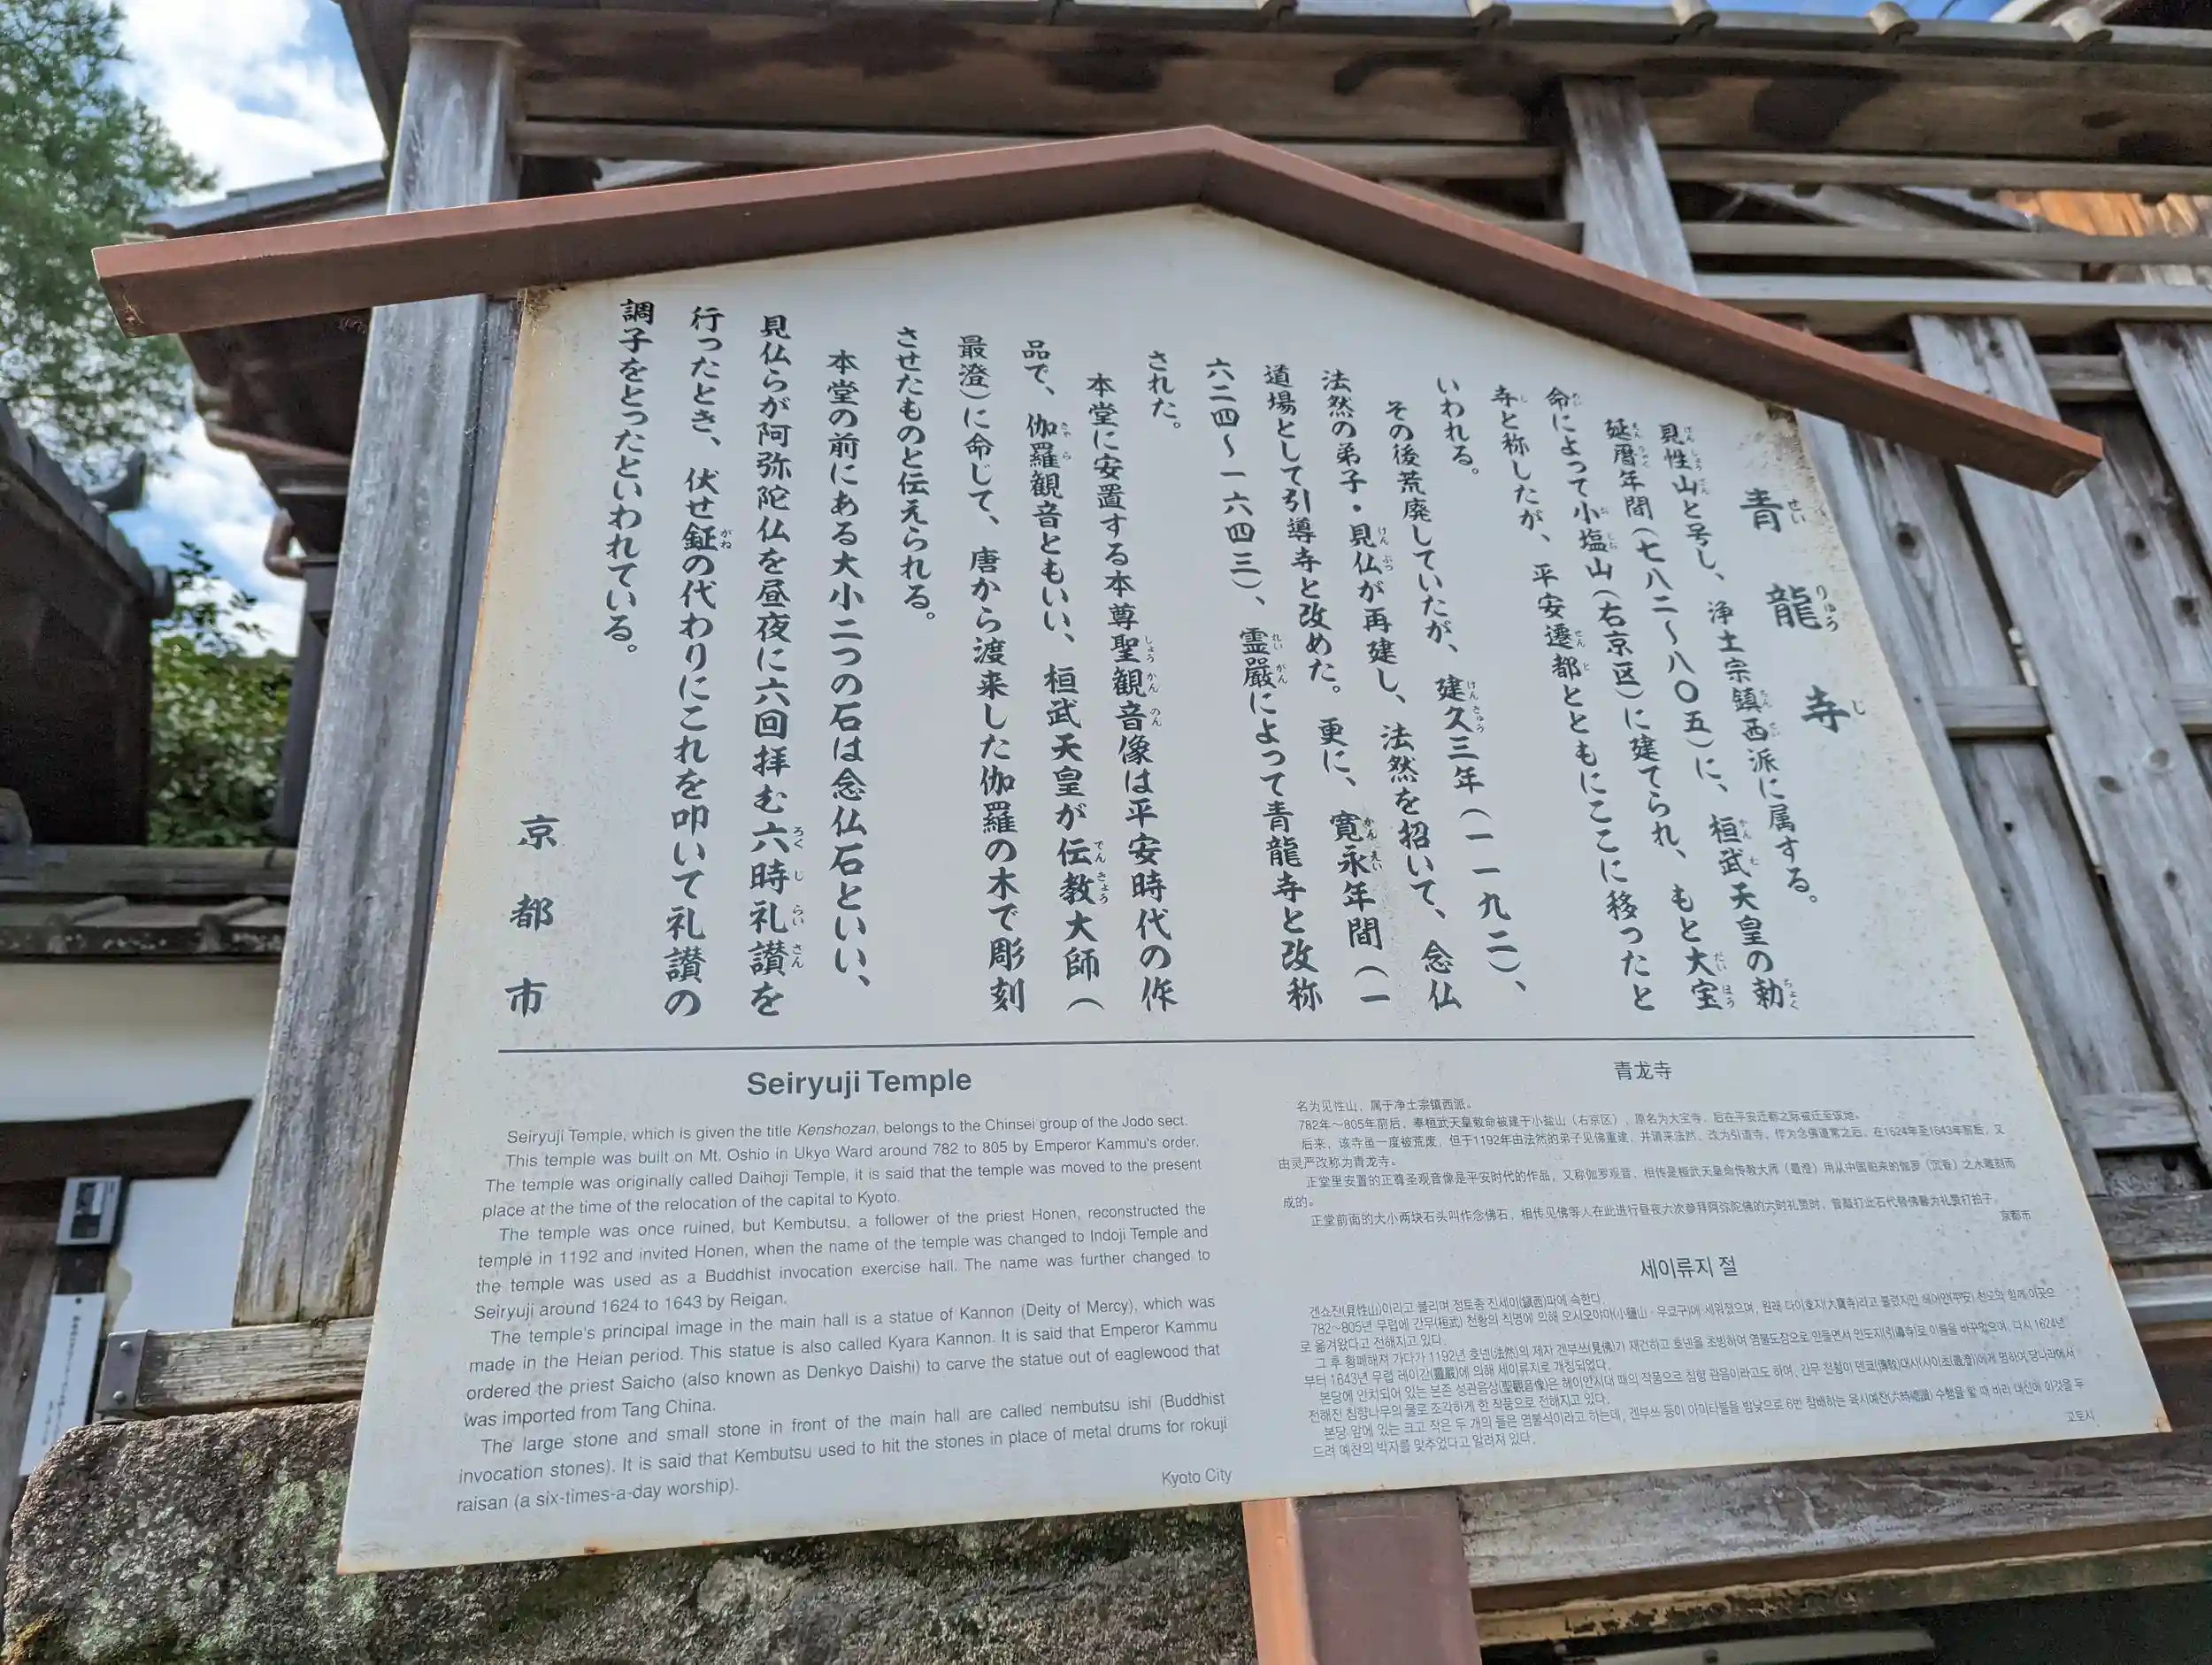 青龍寺
見性山と号し、浄土宗鎮西派に属する。
延暦年間（七八二〜八〇五）に、桓武天皇の勅
命によって小塩山（右京区）に建てられ、もと大宝
寺と称したが、平安遷都とともにここに移ったと
いわれる。
その後荒廃していたが、建久三年（一一九二）、
法然の弟子・見仏が再建し、法然を招いて、念仏
道場として引導寺と改めた。更に、寛永年間（一
六二四〜一六四三）、霊巌によって青龍寺と改称
された。
本堂に安置する本尊聖観音像は平安時代の作
品で、伽羅観音ともいい、桓武天皇が伝教大師（
最澄）に命じて、唐から渡来した伽羅の木で彫刻
させたものと伝えられる。
本堂の前にある大小二つの石は念仏石といい、
見仏らが阿弥陀仏を昼夜に六回拝む六時礼讃を
行ったとき、伏せ鉦の代わりにこれを叩いて礼讃の
調子をとったといわれている。
京都市
Seiryuji Temple
Seiryuji Temple, which is given the title Kenshozan, belongs to the Chinsei group of the Jodo sect.
This temple was built on Mt. Oshio in Ukyo Ward around 782 to 805 by Emperor Kammu's order.
The temple was originally called Daihoji Temple, it is said that the temple was moved to the present
place at the time of the relocation of the capital to Kyoto.
The temple was once ruined, but Kembutsu, a follower of the priest Honen, reconstructed the
temple in 1192 and invited Honen, when the name of the temple was changed to Indoji Temple and
the temple was used as a Buddhist invocation exercise hall. The name was further changed to
Seiryuji around 1624 to 1643 by Reigan.
The temple's principal image in the main hall is a statue of Kannon (Deity of Mercy), which was
made in the Heian period. This statue is also called Kyara Kannon. It is said that Emperor Kammu
ordered the priest Saicho (also known as Denkyo Daishi) to carve the statue out of eaglewood that
was imported from Tang China.
The large stone and small stone in front of the main hall are called nembutsu ishi (Buddhist
invocation stones). It is said that Kembutsu used to hit the stones in place of metal drums for rokuji
raisan (a six-times-a-day worship).
Kyoto City
青龙寺
名为见性山，属于净土宗镇西派。
782年～805年前后，奉桓武天皇敕命被建于小盐山（右京区），原名为大宝寺，后在平安迁都之际被迁至该地。
后来，该寺虽一度被荒废，但于1192年由法然的弟子见佛重建，并请来法然，改为引道寺，作为念佛道常之后，在1624年至1643年前后，又
由灵严改称为青龙寺。
正堂里安置的正尊圣观音像是平安时代的作品，又称伽罗观音，相传是桓武天皇命传教大师（最澄）用从中国舶来的伽罗（沉香）之木雕刻而
成的。
正堂前面的大小两块石头叫作念佛石，相传见佛等人在此进行昼夜六次参拜阿弥陀佛的六时礼赞时，曾敲打此石代替佛磬为礼赞打拍子。
京都市
세이류지 절
겐쇼잔(見性山)이라고 불리며 정토종 진세이(鎭西)파에 속한다.
782～805년 무렵에 간무(桓武) 천황의 칙명에 의해 오시오야마(小鹽山·우쿄구)에 세워졌으며, 원래 다이호지(大寶寺)라고 불렸지만 헤이안(平安) 천도와 함께 이곳으
로 옮겨왔다고 전해지고 있다.
그 후 황폐해져 가다가 1192년 호넨(法然)의 제자 겐부쓰(見佛)가 재건하고 호넨을 초빙하여 염불도장으로 만들면서 인도지(引導寺)로 이름을 바꾸었으며, 다시 1624년
부터 1643년 무렵 레이간(靈巖)에 의해 세이류지로 개칭되었다.
본당에 안치되어 있는 본존 성관음상(聖觀音像)은 헤이안시대 때의 작품으로 침향 관음이라고도 하며, 간무 천황이 덴쿄(傳敎)대사(사이초(最澄))에게 명하여 당나라에서
전해진 침향나무의 물로 조각하게 한 작품으로 전해지고 있다.
본당 앞에 있는 크고 작은 두 개의 돌은 염불석이라고 하는데, 겐부쓰 등이 아미타불을 밤낮으로 6번 참배하는 육시예찬(六時禮讚) 수행을 할 때 바라 대신에 이것을 두
드려 예찬의 박자를 맞추었다고 알려져 있다.
교토시